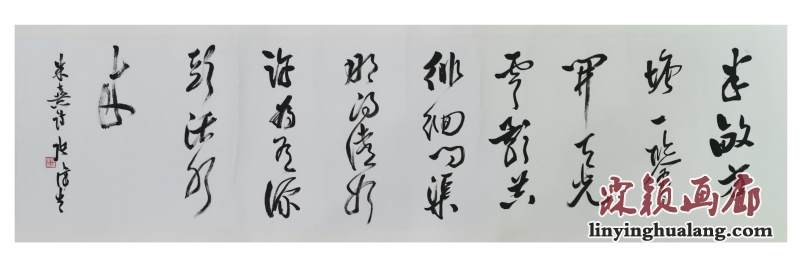 半敏方
塘一鑑
開天光
雲影共
徘徊问渠
那得清如
許為有源
頭活水
来
朱熹诗
霖颖画廊
linyinghualang.com